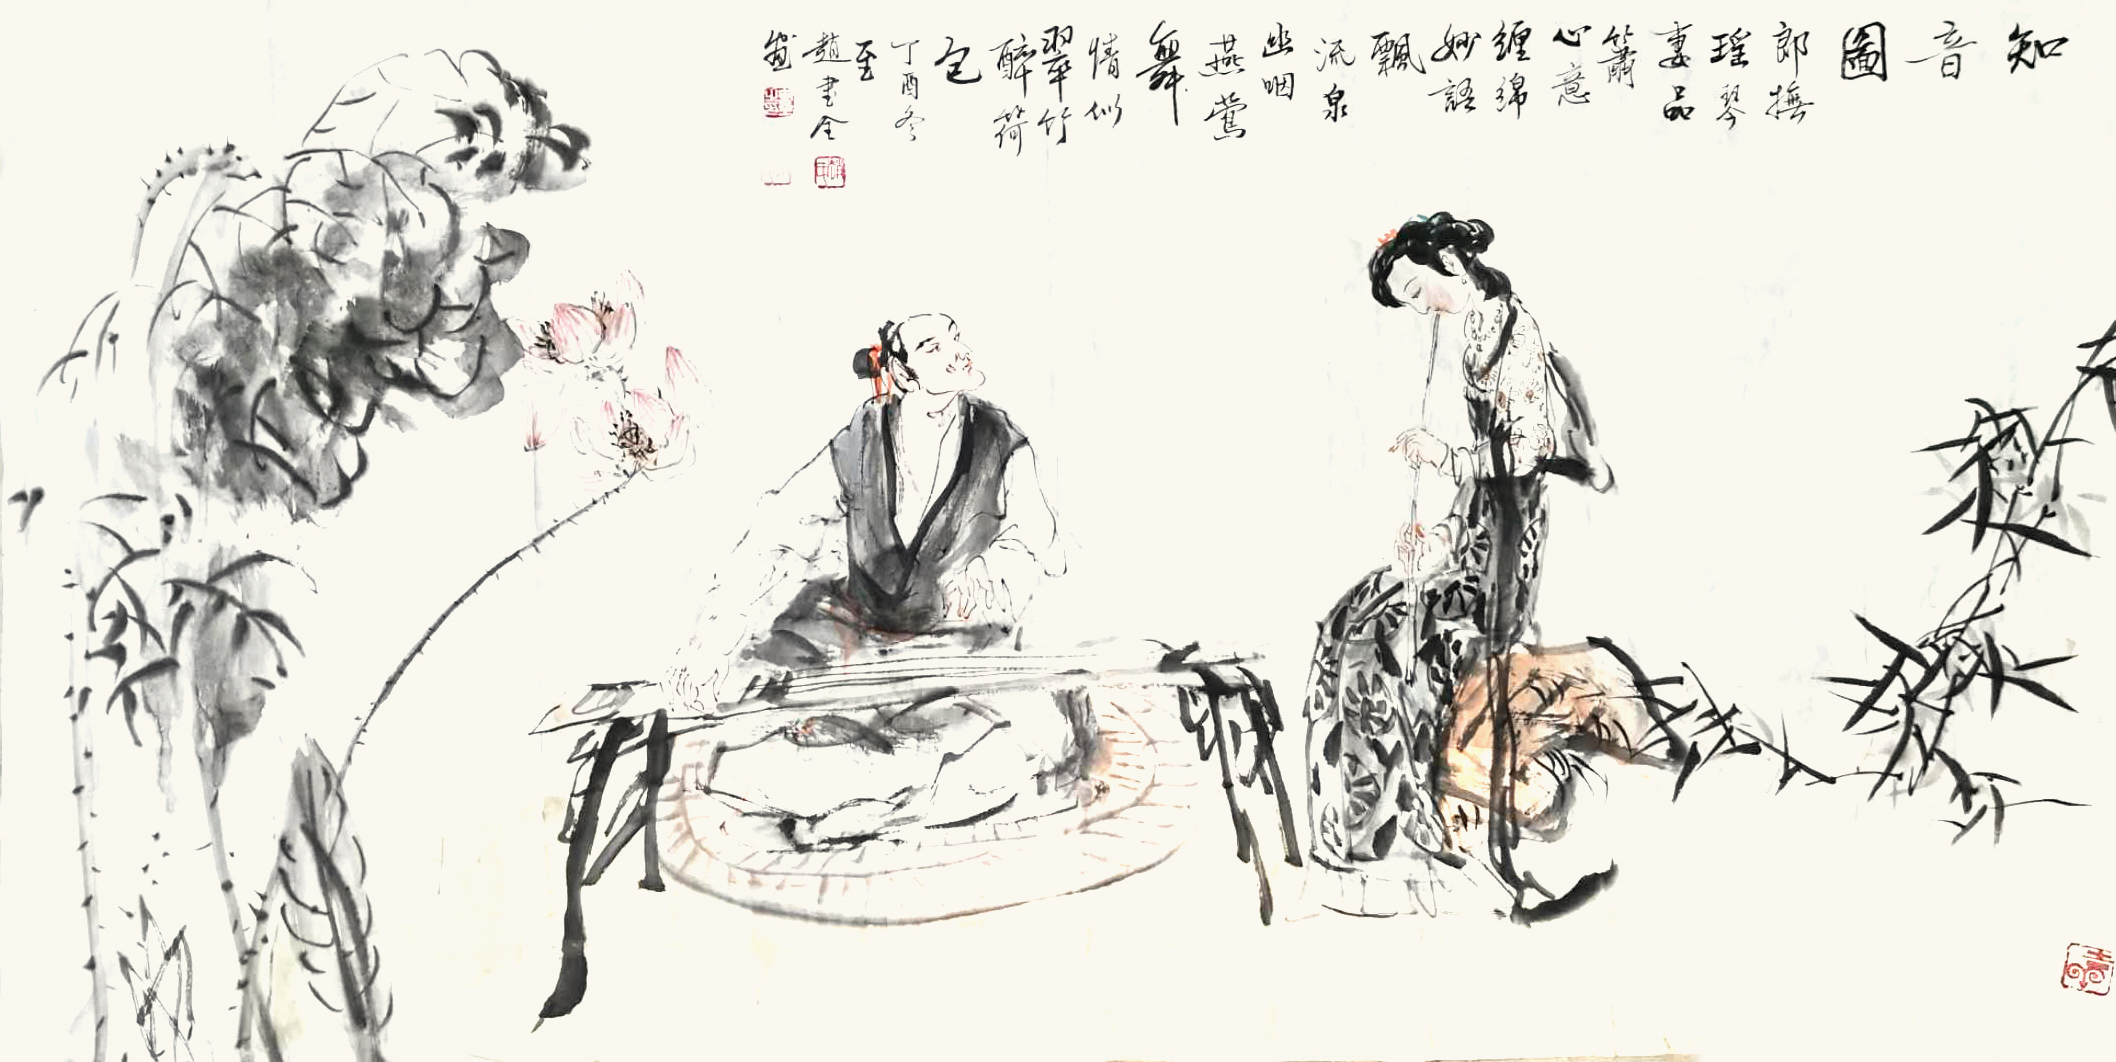 知
音
圖
郎撫
瑶琴
妻品
簫
心意
缠绵
妙語
飄
流泉
幽咽
燕鶯
舞
情似
翠竹
醉荷
包
丁酉冬
至
趙書全
畫